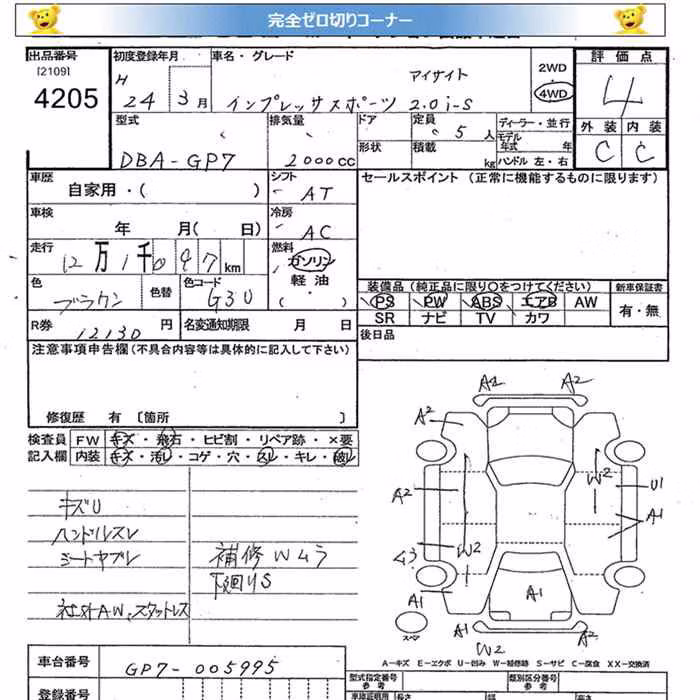 完全ゼロ切りコーナー
出品番号 初度登録年月 車名・グレード 評価点
[2109] H アイサイト 2WD
4205 24 3月 インプレッサスポーツ 2.0i-S 4WD 4
型式 排気量 ドア 定員 5人 ディーラー・並行 外装 内装
DBA-GP7 2000cc 形状 積載 kg モデル年式 年 C C
ハンドル 左・右
車歴 自家用・( ) シフト AT セールスポイント (正常に機能するものに限ります)
車検 年 月( 日) 冷房 AC
走行 12万1千097km 燃料 ガソリン
軽油
( )
色 ブラウン 色替 色コード G3U 装備品(純正品に限り○をつけてください) 新車保証書
PS PW ABS エアB AW 有・無
R券 12130円 名変通知期限 月 日 SR ナビ TV カワ
注意事項申告欄(不具合内容等は具体的に記入して下さい) 後日品
修復歴 有 [箇所 ]
検査員 FW キズ・飛石・ヒビ割・リペア跡・×要
記入欄 内装 キズ・汚レ・コゲ・穴・スレ・キレ・破レ
キズU
ハンドルスレ
シートヤブレ 補修Wムラ
下廻りS
社外AW,スタットレス
A2 A2
A2
A2 W2 U1
A1
G3 W2
A1 A1
スペア A1 A1
W2
A－キズ E－エクボ U－凹み W－補修跡 S－サビ C－腐食 XX－交換済
車台番号 GP7-005995 型式指定番号 類別区分番号
参考 参考
登録番号 車種証明用 長さ 幅 高さ